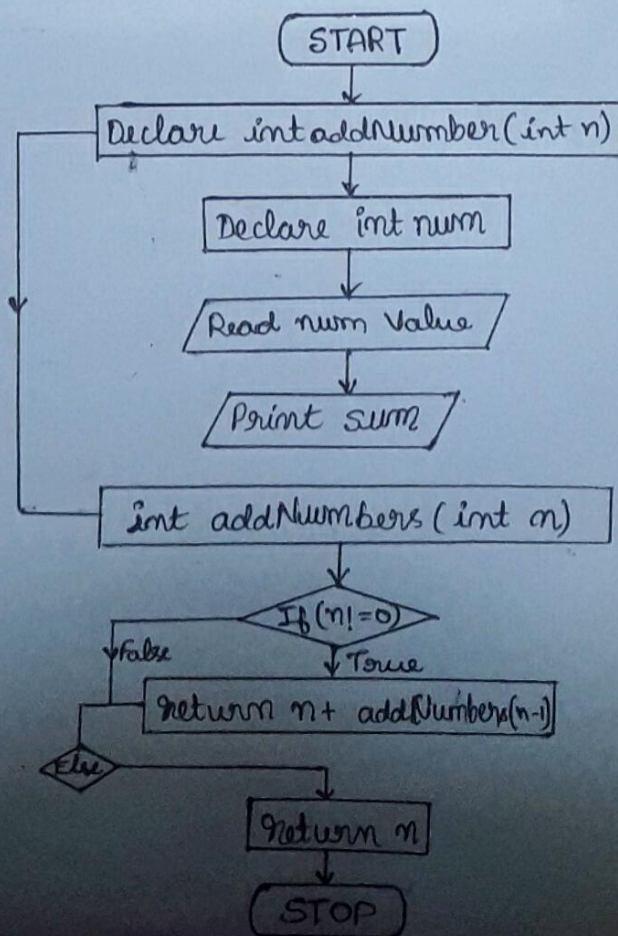 START
Declare int addNumber(int n)
Declare int num
Read num Value
Print sum
int addNumbers (int n)
If (n!=0)
False
True
return n+ addNumbers(n-1)
Else
return n
STOP